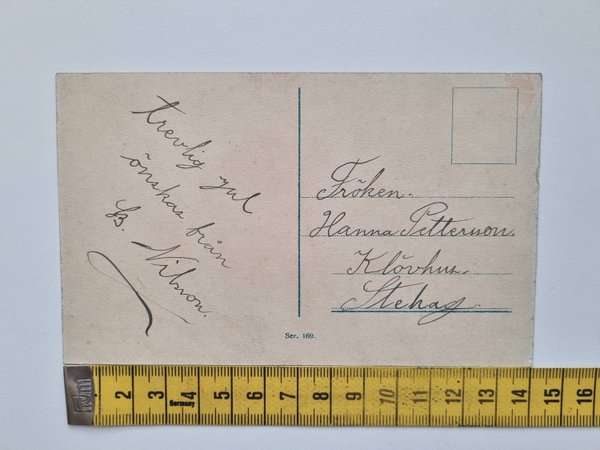 trevlig jul
önskas från
B. Nilsson.
Fröken.
Hanna Petterson.
Klövhus.
Stehag.
Ser. 169.
2 3 4 5 6 7 8 9 10 11 12 13 14 15 16
Germany